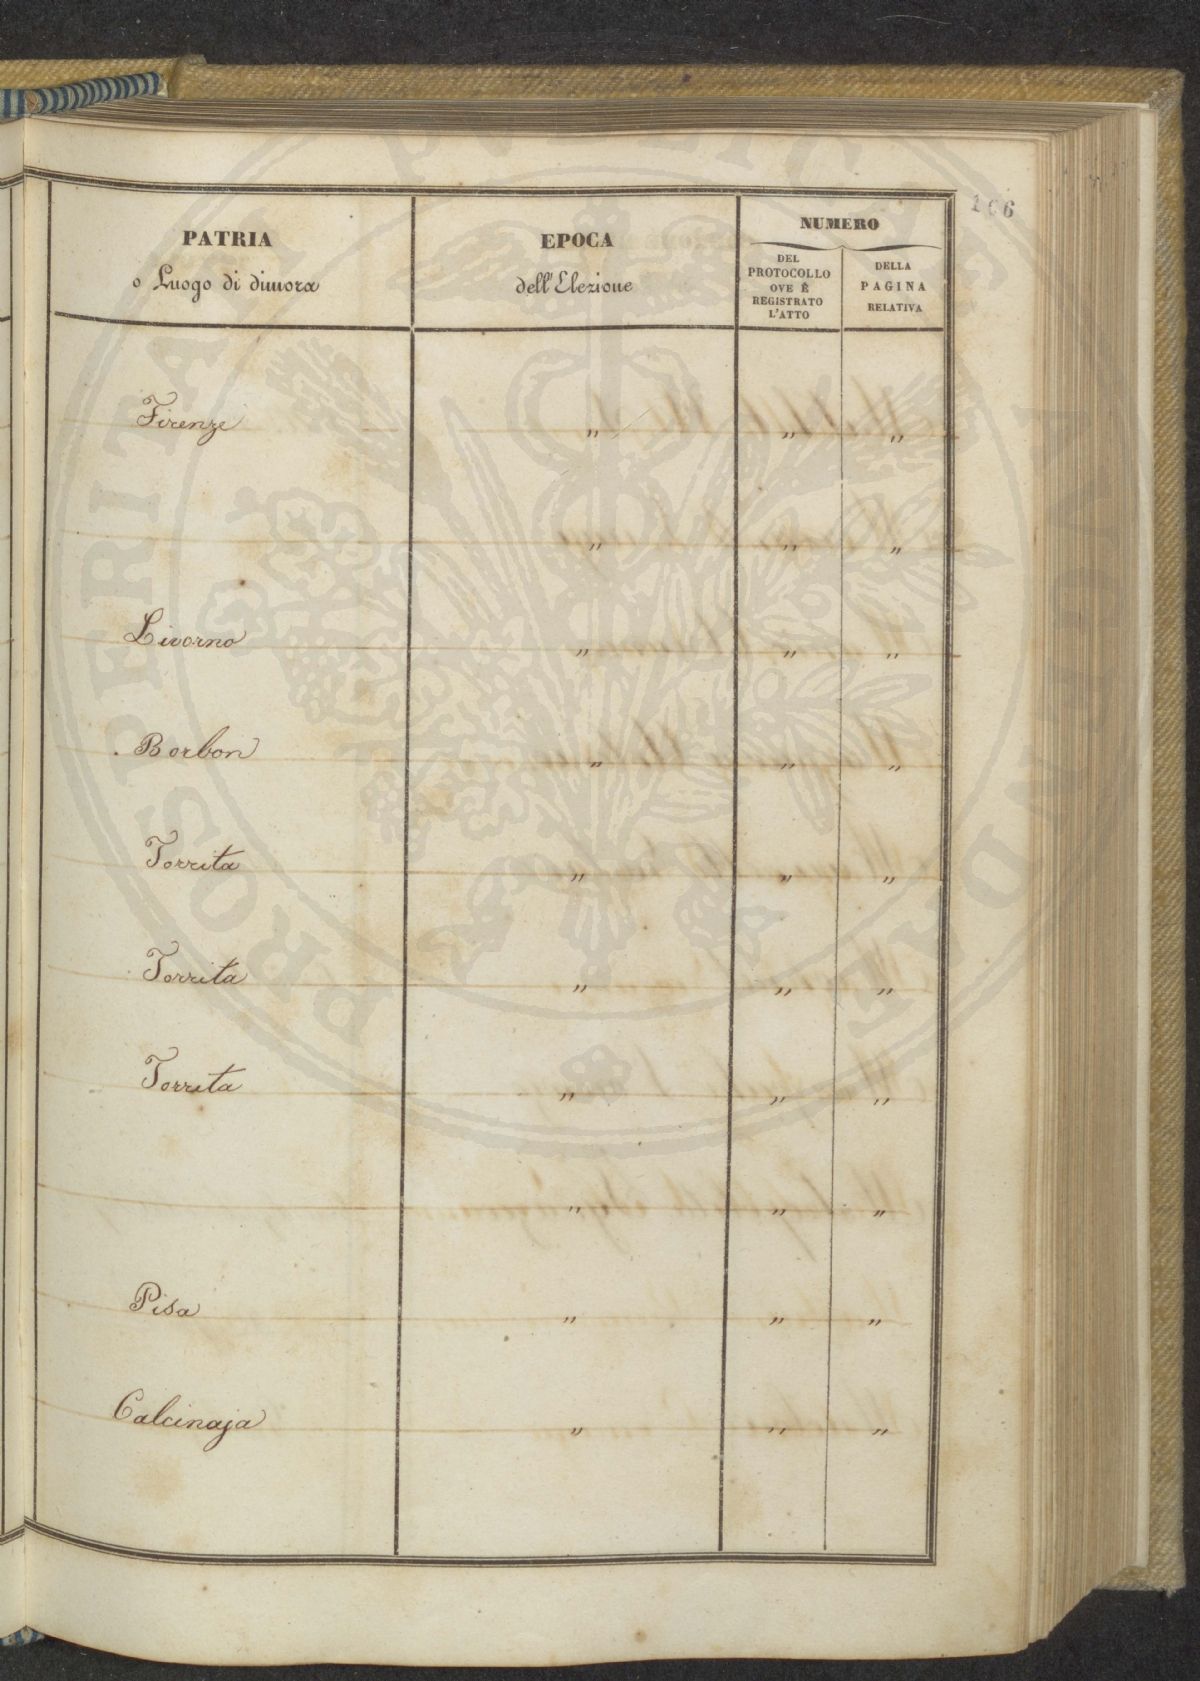 106
PATRIA
o Luogo di dimora
EPOCA
dell'Elezione
NUMERO
DEL
PROTOCOLLO
OVE È
REGISTRATO
L'ATTO
DELLA
PAGINA
RELATIVA
Firenze " " "
" " "
Livorno " " "
Borbon " " "
Torrita " " "
Torrita " " "
Torrita " " "
" " "
Pisa " " "
Calcinaja " " "
PROSPERITATI PUBLICAE AUGENDAE